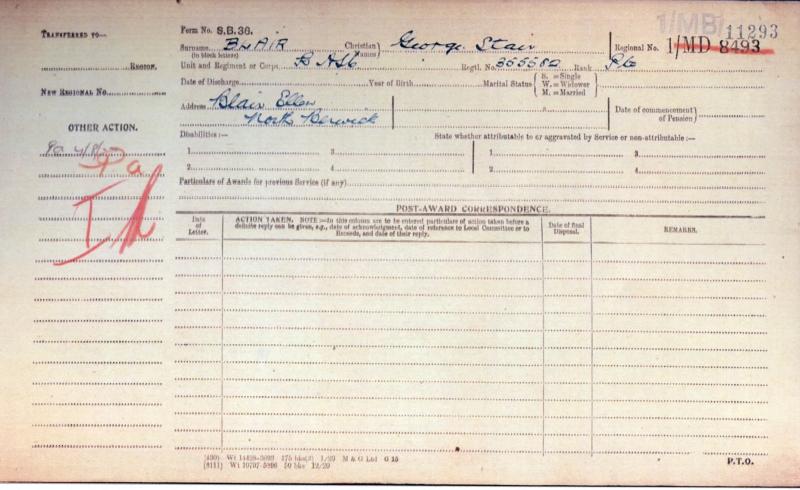 TRANSFERRED TO—
REGION.
NEW REGIONAL NO.
OTHER ACTION.
Form No. S.B. 36.
1/MB/11293
Surname BLAIR (In block letters) Christian Names George Stair Regional No. 1/MD 8493
Unit and Regiment or Corps. Regtl. No. 355552 Rank Pte
Date of Discharge Year of Birth Marital Status { S. = Single W. = Widower M. = Married
Address Blair Ellen
North Berwick
Date of commencement of Pension }
Disabilities :— State whether attributable to or aggravated by Service or non-attributable :—
1. 3. 1. 3.
2. 4. 2. 4.
Particulars of Awards for previous Service (if any)
POST-AWARD CORRESPONDENCE.
Date of Letter.
ACTION TAKEN. NOTE :—In this column are to be entered particulars of action taken before a
definite reply can be given, e.g., date of acknowledgment, date of reference to Local Committee or to
Records, and date of their reply.
Date of final Disposal.
REMARKS.
M & G Ltd G 15
P.T.O.